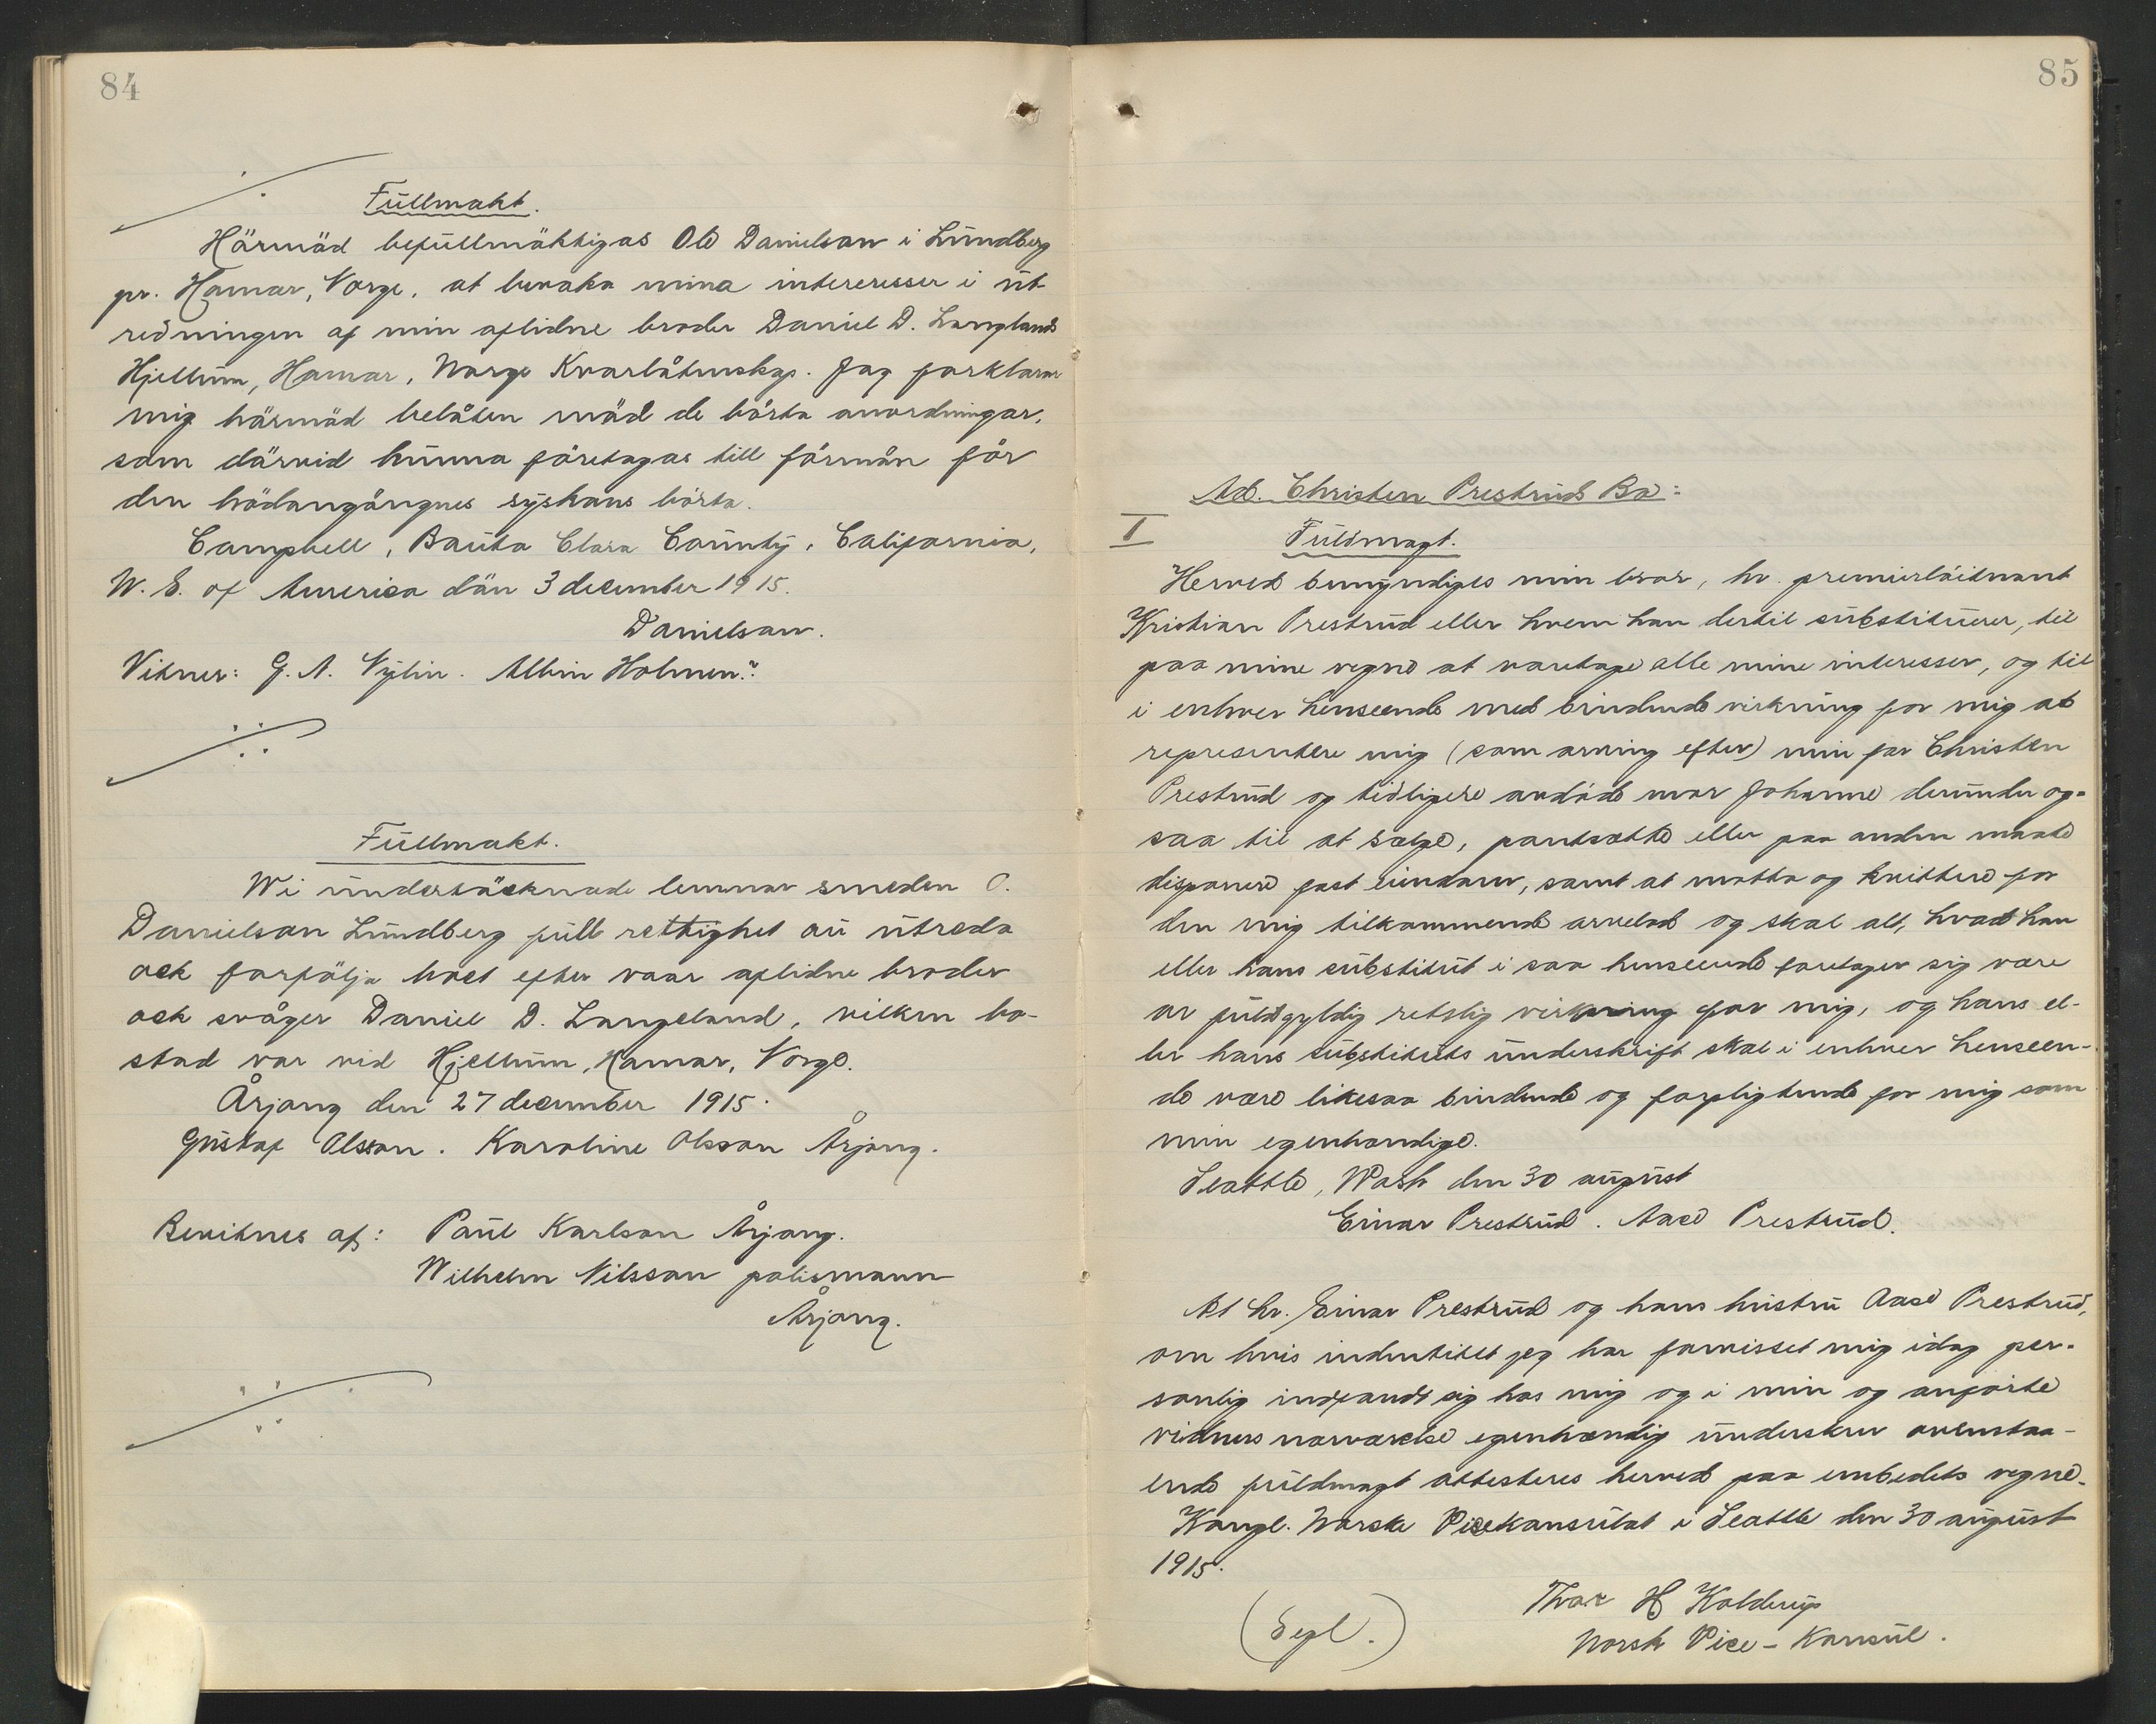 84
Fullmakt.
Härmäd befullmäktigas Ole Danielsøn i Lundberg
pr. Hamar, Norge, at bevaka mina intereresser i ut-
redningen af min aflidne broder Daniel D. Langlands
Hjellum, Hamar, Norge Kvarlåtenskap. Jag forklarar
mig härmäd belåten mäd de bästa anordningar,
som därvid kunna företagas till förmån för
den hädangångnes syskons bästa.
Campbell, Santa Clara County, California,
W. S. of America dän 3 december 1915.
Danielson.
Vitner: G. A. Nylin. Albin Holmen."
Fullmakt.
Wi undertäcknade lemnar smeden O.
Danielson Lundberg full rettighet au utreda
ock forfölja boet efter vaar aflidne broder
ock svåger Daniel D. Langeland, vilken bo-
stad var vid Hjellum, Hamar, Norge.
Årjang den 27 december 1915.
Gustaf Olsson. Karoline Olsson Årjang.
Bevitnes af: Paul Karlson Årjang.
Wilhelm Nilsson polismann
Årjang.
85
Ad. Christen Prestruds Bo:
I
Fuldmagt.
Herved bemyndiges min bror, hr. premierløitnant
Kristian Prestrud eller hvem han dertil substituerer, til
paa mine vegne at varetage alle mine interesser, og til
i enhver henseende med bindende virkning for mig at
representere mig (som arving efter) min far Christen
Prestrud og tidligere avdøde mor Johanne derunder og-
saa til at sælge, pantsætte eller paa anden maate
disponere fast eiendom, samt at motta og kvittere for
den mig tilkommende arvelod og skal alt, hvad han
eller hans substitut i saa henseende foretager sig være
av fuldgyldig retslig virkning for mig, og hans el-
ler hans substituts underskrift skal i enhver henseen-
de være likesaa bindende og forpligtende for mig som
min egenhændige.
Seattle, Wash den 30 august
Einar Prestrud. Aase Prestrud.
At hr. Einar Prestrud og hans hustru Aase Prestrud,
om hvis indentitet jeg har forvisset mig idag per-
sonlig indfandt sig hos mig og i min og anførte
vidners nærværelse egenhændig underskrev ovenstaa-
ende fuldmagt attesteres herved paa embedets vegne.
Kongl. Norske Vicekonsulat i Seattle den 30 august
1915.
(Segl.)
Thor H Kolderup
Norsk Vice-Konsul.